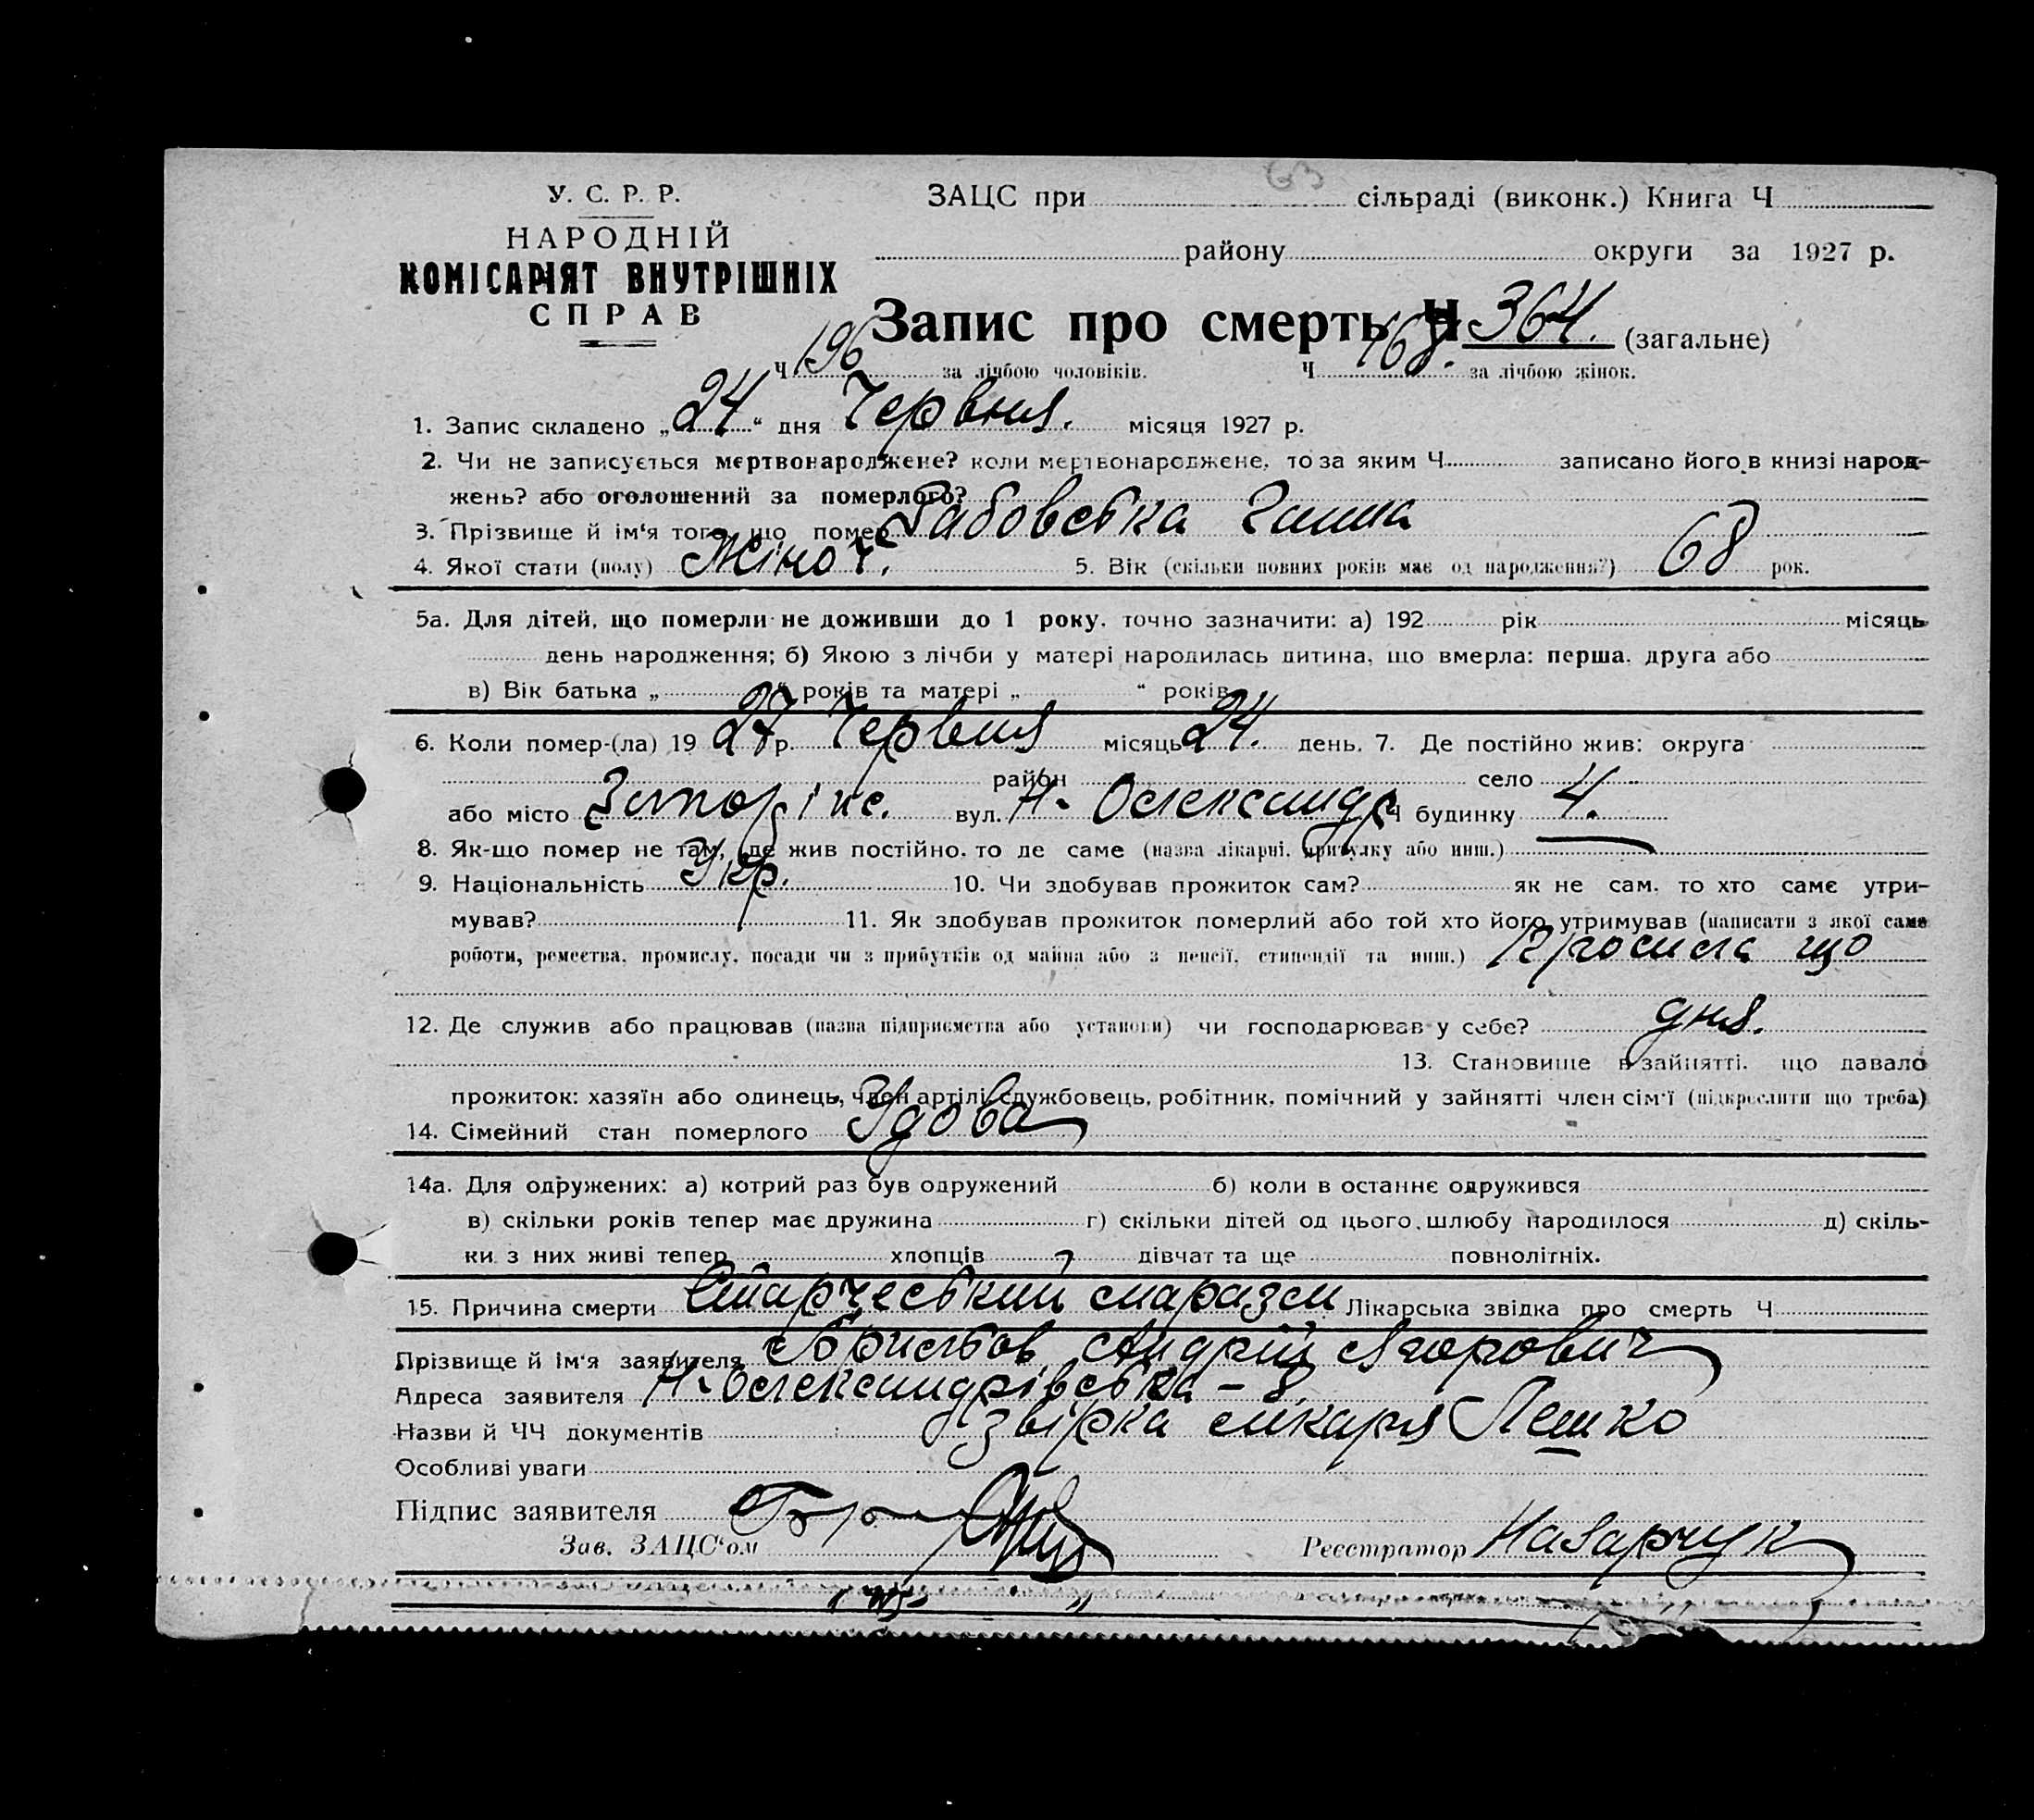 63
У. С. Р. Р.
НАРОДНІЙ
КОМІСАРІЯТ ВНУТРІШНІХ
СПРАВ
ЗАЦС при сільраді (виконк.) Книга Ч
району округи за 1927 р.
Запис про смерть Ч 364. (загальне)
Ч 196 за лічбою чоловіків. Ч 168. за лічбою жінок.
1. Запис складено „24“ дня Червня. місяця 1927 р.
2. Чи не записується мертвонароджене? коли мертвонароджене, то за яким Ч записано його в книзі народ-
жень? або оголошений за померлого?
3. Прізвище й ім‘я того, що помер Рабовська Ганна
4. Якої стати (полу) Жіноч. 5. Вік (скільки повних років має од народження?) 68 рок.
5а. Для дітей, що померли не доживши до 1 року, точно зазначити: а) 192 рік місяць
день народження; б) Якою з лічби у матері народилась дитина, що вмерла: перша, друга або
в) Вік батька „ “ років та матері „ “ років
6. Коли помер-(ла) 1927 р. Червня місяць 24. день. 7. Де постійно жив: округа
район село
або місто Запоріж. вул. Н. Олександр Ч будинку 4.
8. Як-що помер не там, де жив постійно, то де саме (назва лікарні, притулку або инш.)
9. Національність Укр. 10. Чи здобував прожиток сам? як не сам, то хто саме утри-
мував? 11. Як здобував прожиток померлий або той хто його утримував (написати з якої саме
роботи, ремества, промислу, посади чи з прибутків од майна або з пенсії, стипендії та инш.) Просила що
12. Де служив або працював (назва підприємства або установи) чи господарював у себе? дня.
13. Становище в зайнятті, що давало
прожиток: хазяїн або одинець, член артілі, службовець, робітник, помічний у зайнятті член сім‘ї (підкреслити що треба)
14. Сімейний стан померлого Удова
14а. Для одружених: а) котрий раз був одружений б) коли в останнє одружився
в) скільки років тепер має дружина г) скільки дітей од цього шлюбу народилося д) скіль-
ки з них живі тепер хлопців дівчат та ще повнолітніх.
15. Причина смерти Старческий маразм Лікарська звідка про смерть Ч
Прізвище й ім‘я заявителя Андрій Ягорович
Адреса заявителя Н-Олександрівська – 8
Назви й ЧЧ документів звірка лікаря Лешко
Особливі уваги
Підпис заявителя
Зав. ЗАЦС‘ом Реєстратор Назарчук